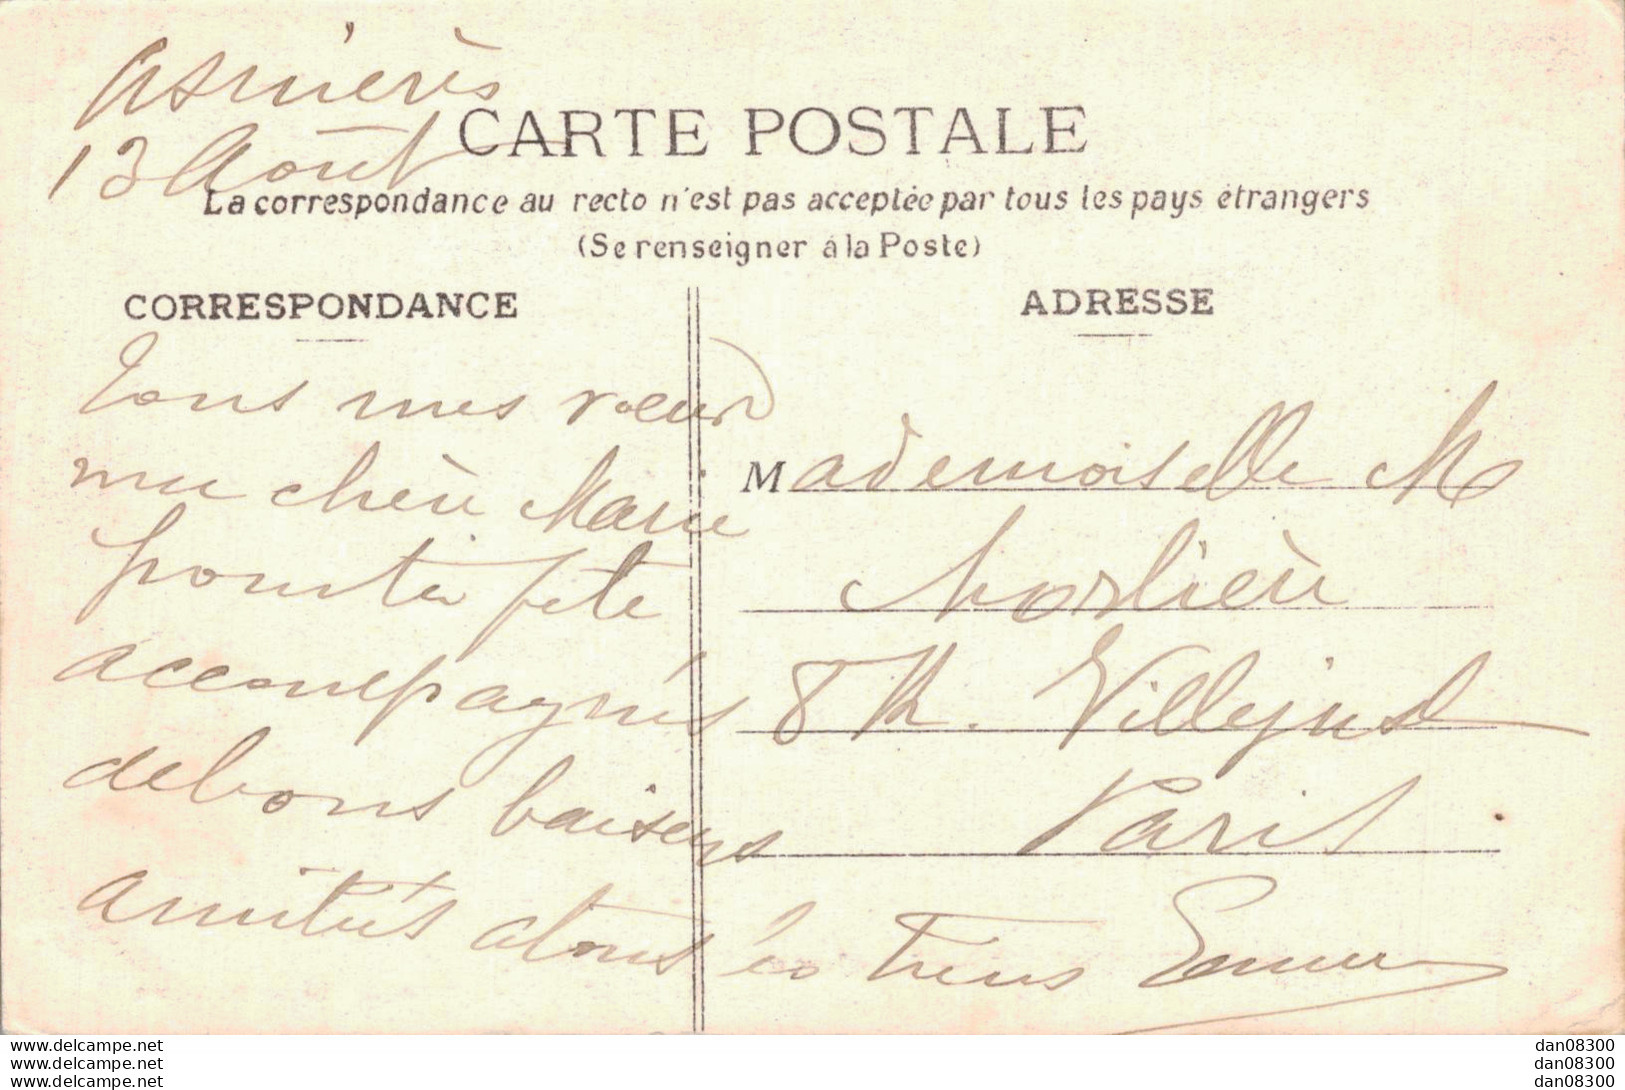 Asnières
13 Août
CARTE POSTALE
La correspondance au recto n'est pas acceptée par tous les pays étrangers
(Se renseigner à la Poste)
CORRESPONDANCE
Tous mes vœux
ma chère Marie
pour ta fête
accompagnés
de bons baisers
amitiés à tous les tiens Emma
ADRESSE
Mademoiselle M
Morlière
8 R. Villejust
Paris
www.delcampe.net
www.delcampe.net
www.delcampe.net
dan08300
dan08300
dan08300